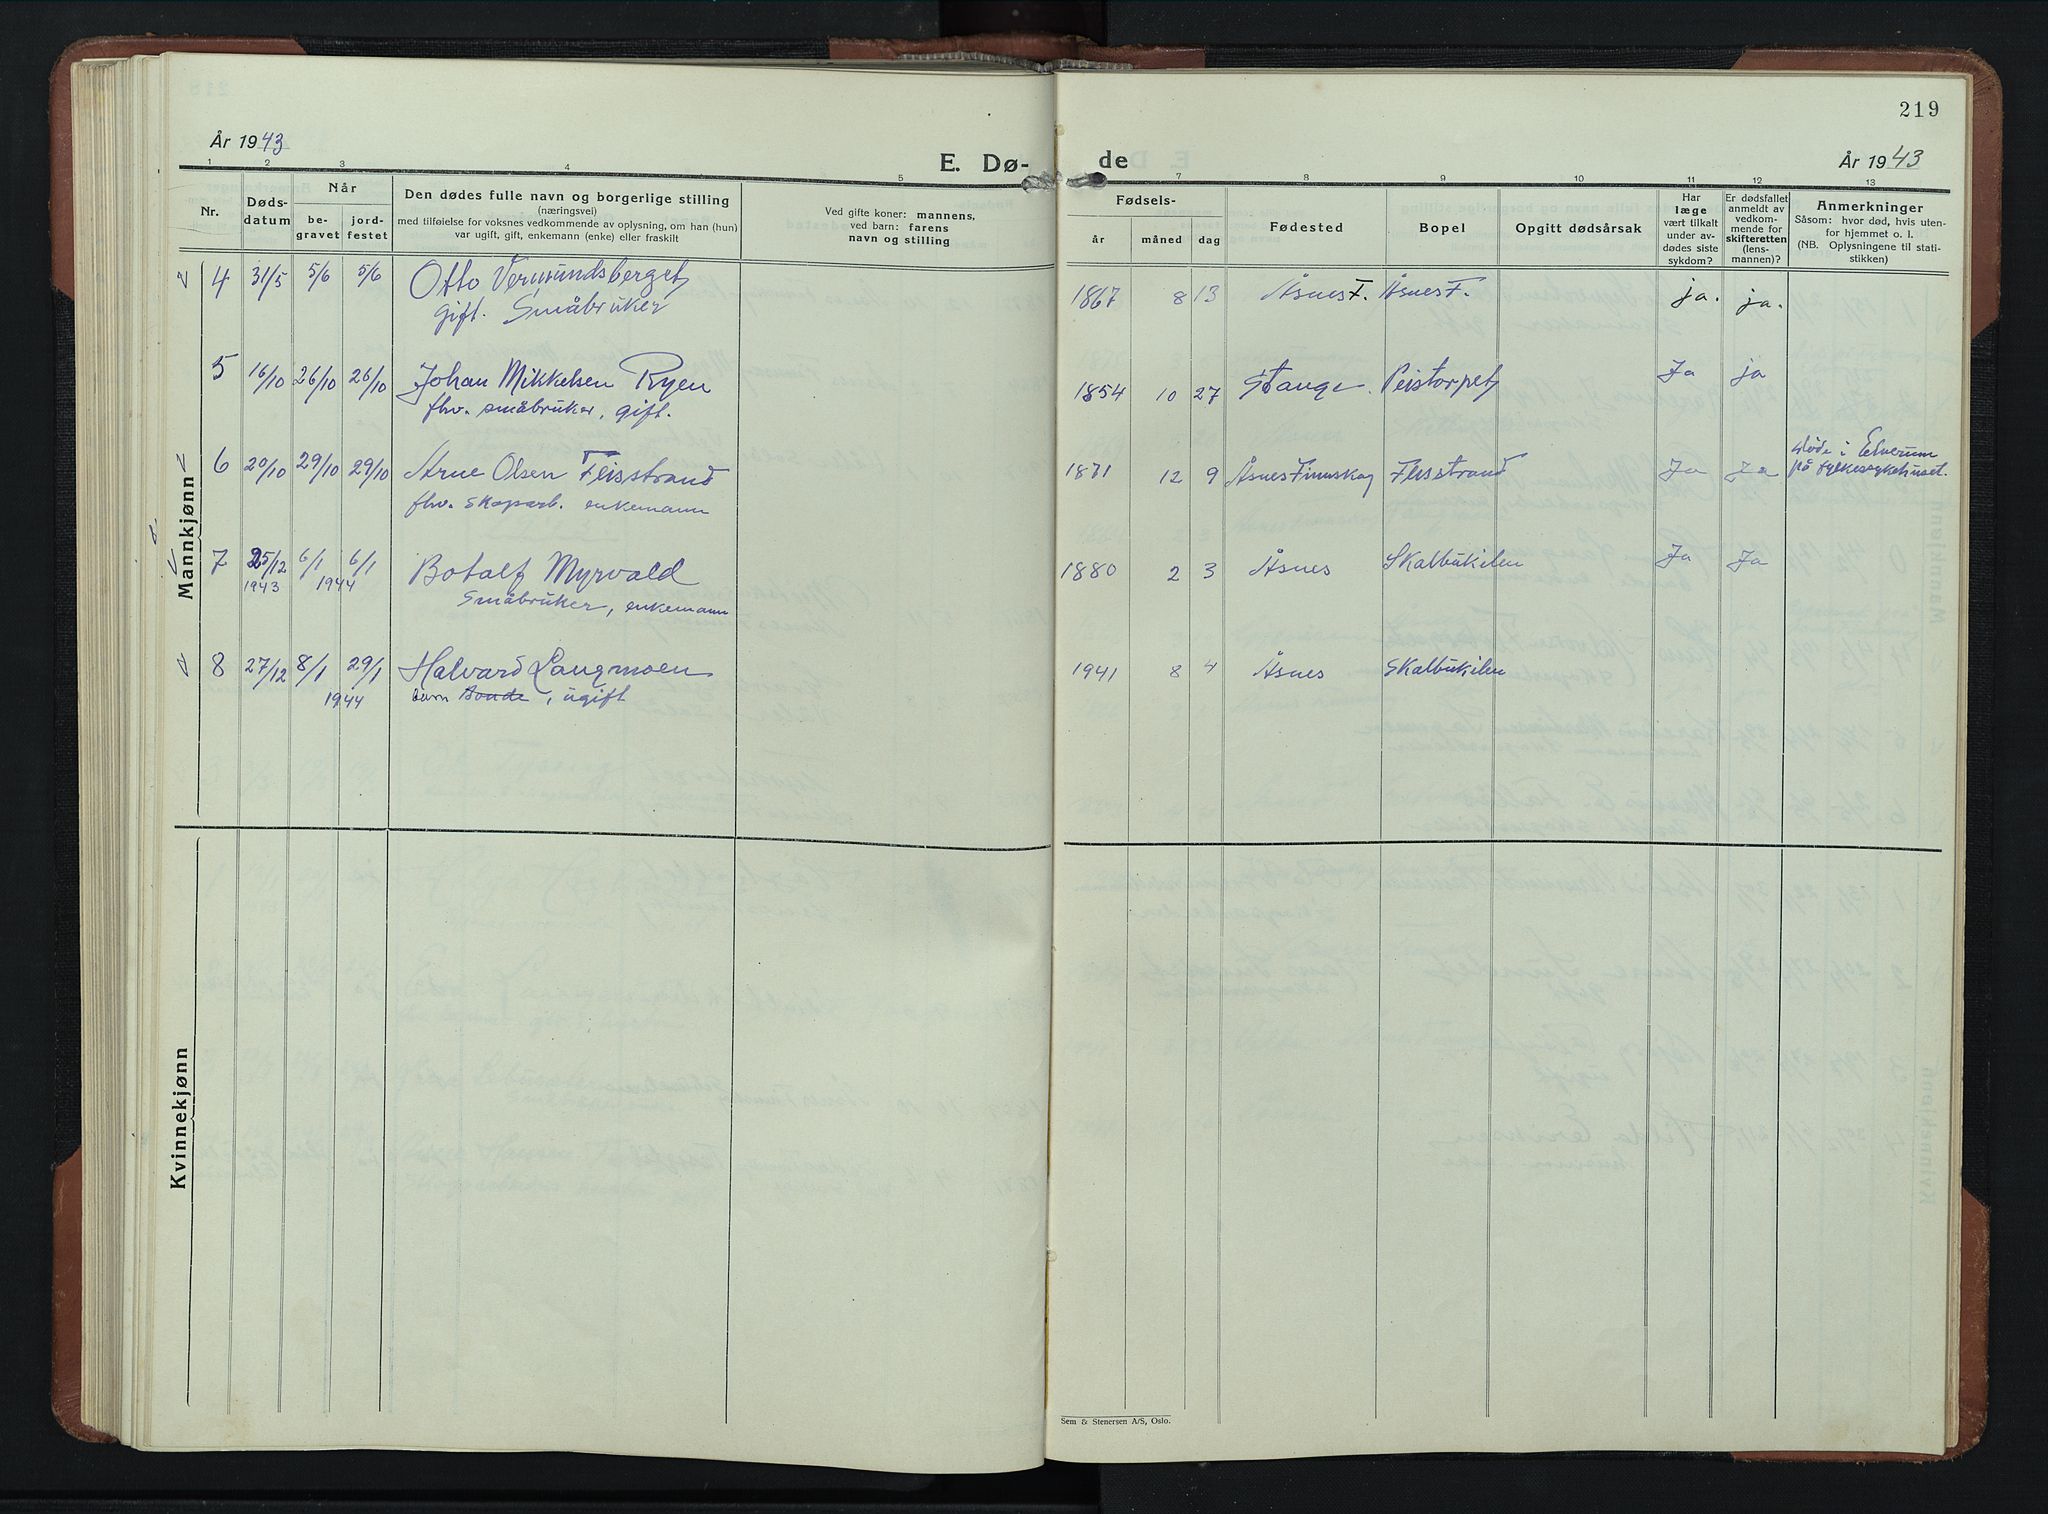 219
År 1943
E. Dø- de
År 1943
1 2 3 4 5 7 8 9 10 11 12 13
Nr.
Døds-
datum
Når
be-
gravet
jord-
festet
Den dødes fulle navn og borgerlige stilling
(næringsvei)
med tilføielse for voksnes vedkommende av oplysning, om han (hun)
var ugift, gift, enkemann (enke) eller fraskilt
Ved gifte koner: mannens,
ved barn: farens
navn og stilling
Fødsels-
år måned dag
Fødested
Bopel
Opgitt dødsårsak
Har
læge
vært tilkalt
under av-
dødes siste
sykdom?
Er dødsfallet
anmeldt av
vedkom-
mende for
skifteretten
(lens-
mannen)?
Anmerkninger
Såsom: hvor død, hvis uten-
for hjemmet o. l.
(NB. Oplysningene til stati-
stikken)
Mannkjønn
4 31/5 5/6 5/6 Otto Vermundsberget 1867 8 13 Åsnes F. Åsnes F. ja. ja.
gift. Småbruker
5 16/10 26/10 26/10 Johan Mikkelsen Ryen 1854 10 27 Stange Peistorpet Ja ja
fhv. småbruker, gift.
6 20/10 29/10 29/10 Arne Olsen Fleisstrand 1871 12 9 Åsnes Finnskog Fleisstrand Ja Ja døde i Elverum
på fylkessykehuset.
fhv. skogarb. enkemann
7 25/12 6/1 6/1 Botolf Myrvold 1880 2 3 Åsnes Skalbukilen Ja Ja
1943 1944 Småbruker, enkemann
8 27/12 8/1 29/1 Halvard Langmoen 1941 8 4 Åsnes Skalbukilen
1944 barn Bonde, ugift
Kvinnekjønn
Sem & Stenersen A/S, Oslo.